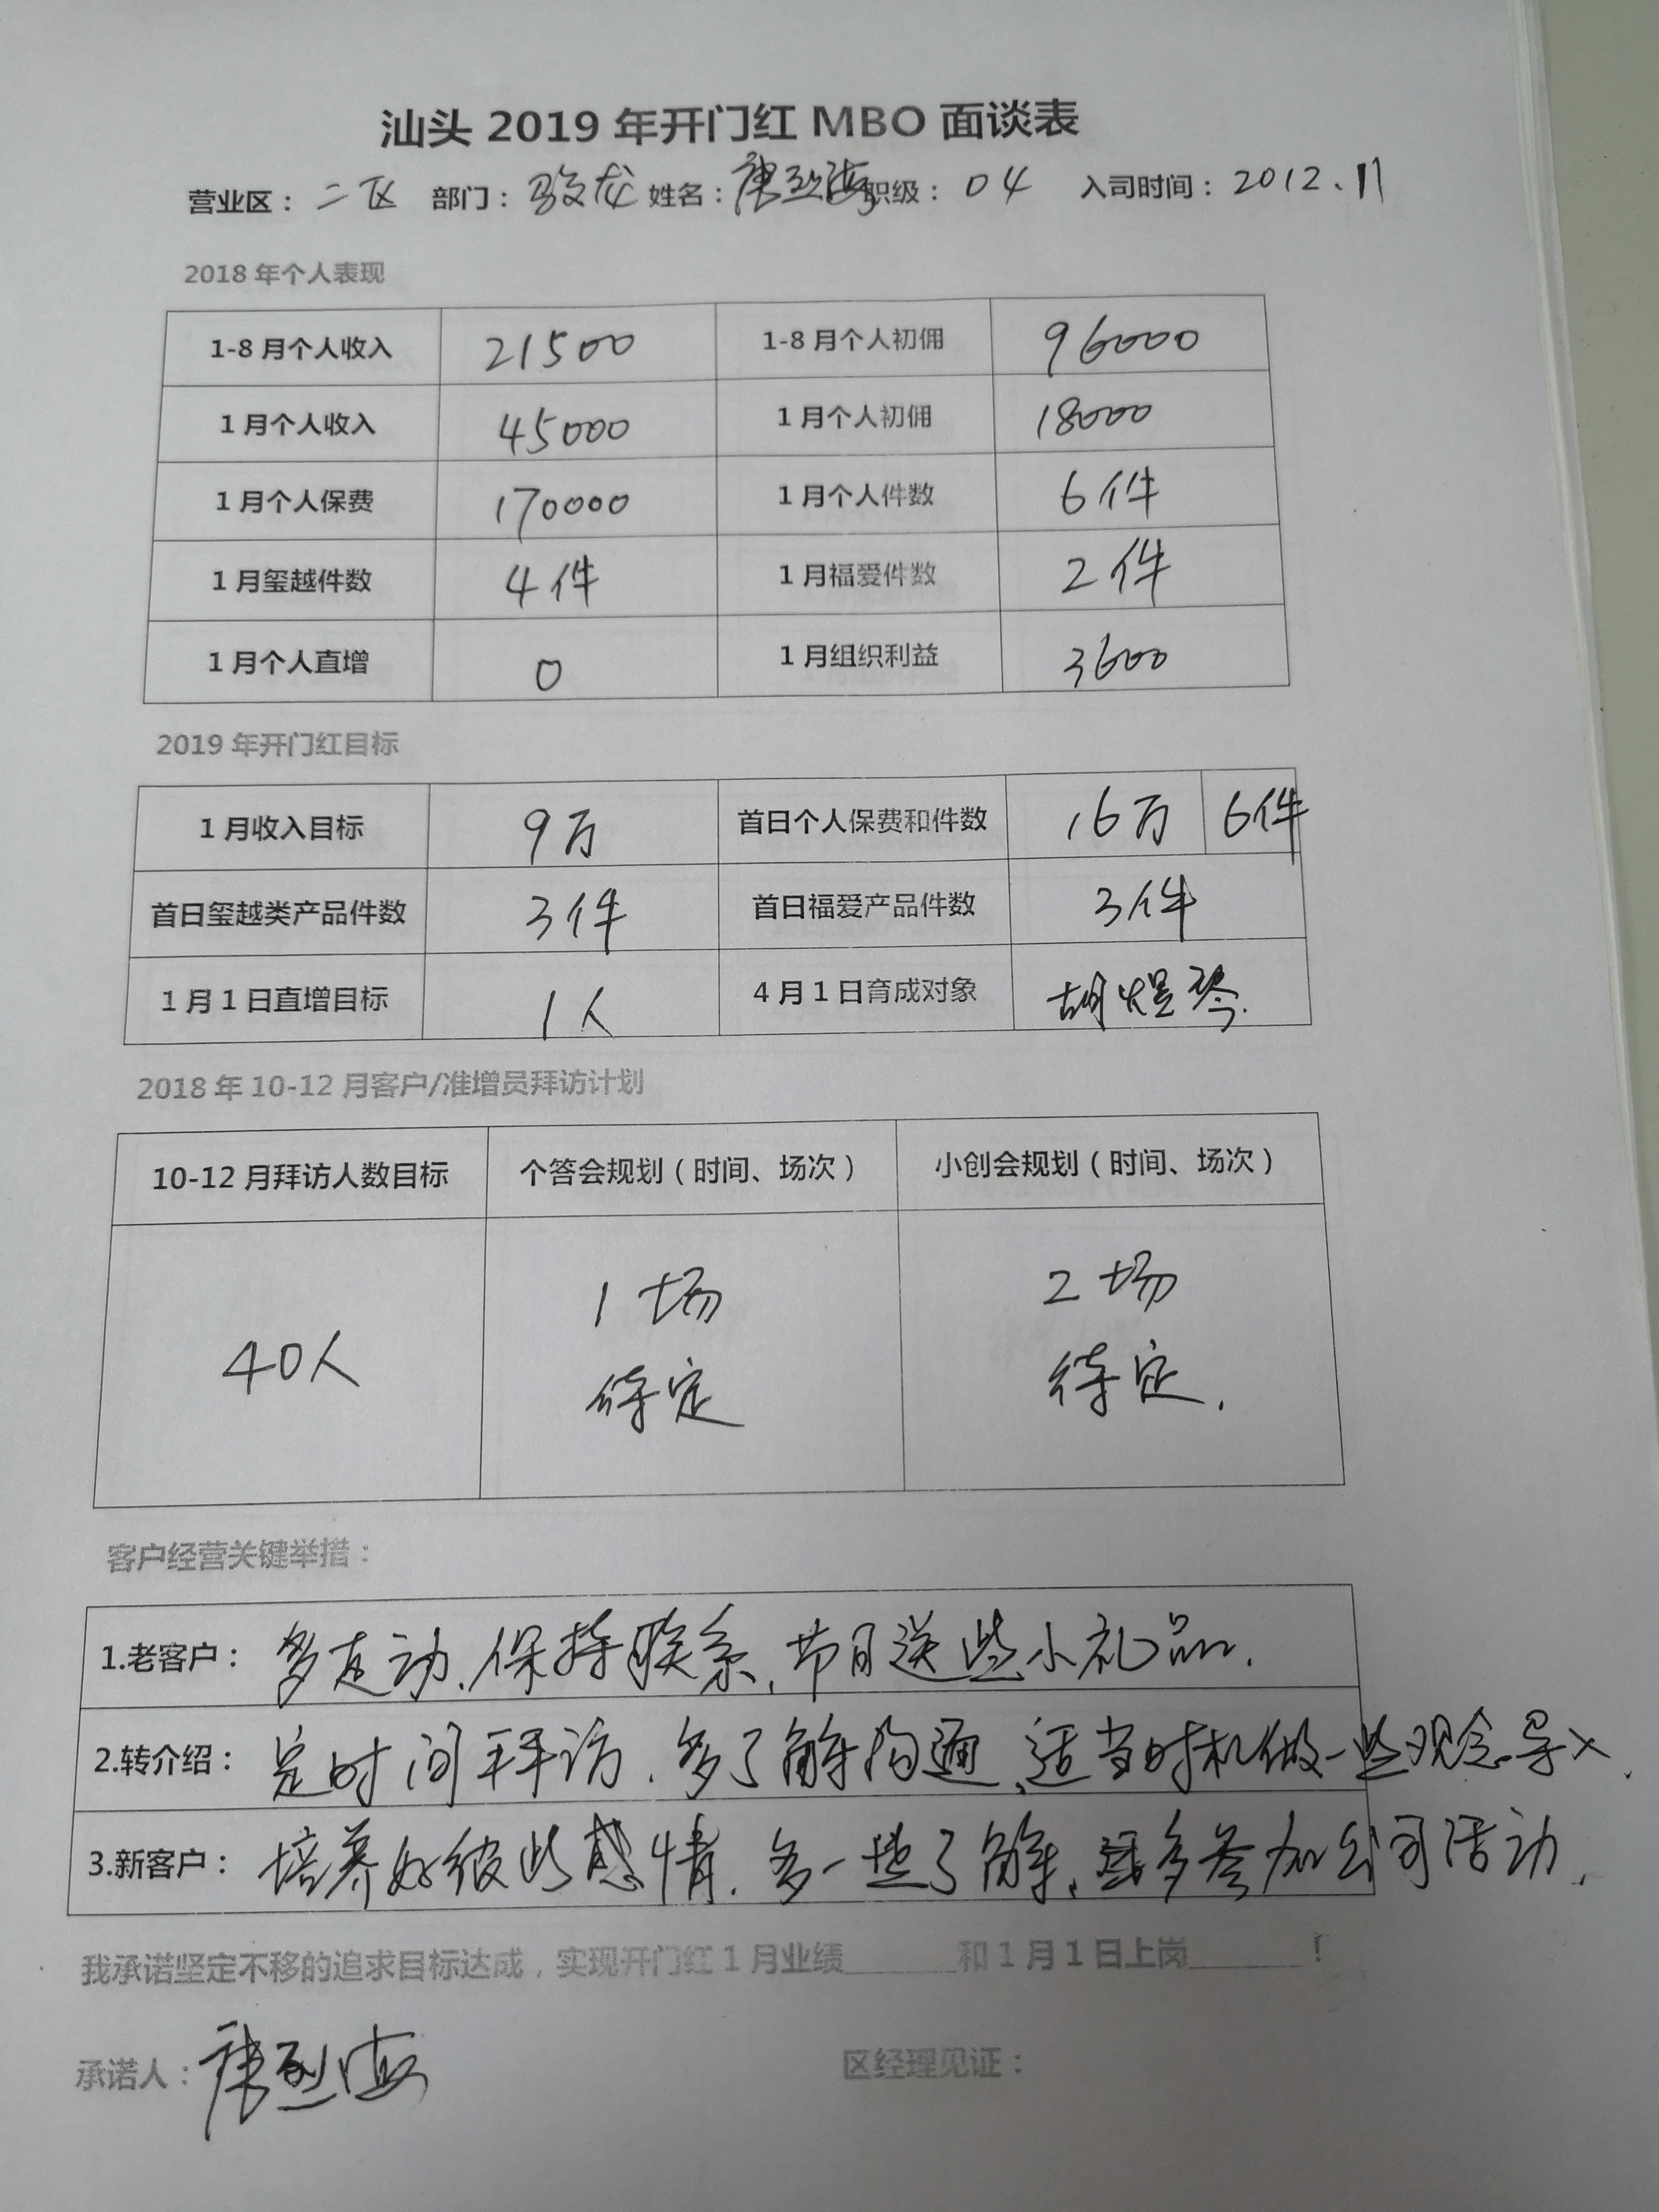 汕头 2019 年开门红 MBO 面谈表
营业区：二区 部门：骏龙 姓名：康 职级：04 入司时间：2012.11
2018 年个人表现
1-8 月个人收入 21500 1-8 月个人初佣 96000
1 月个人收入 45000 1 月个人初佣 18000
1 月个人保费 170000 1 月个人件数 6件
1 月玺越件数 4件 1 月福爱件数 2件
1 月个人直增 0 1 月组织利益 3600
2019 年开门红目标
1 月收入目标 9万 首日个人保费和件数 16万 6件
首日玺越类产品件数 3件 首日福爱产品件数 3件
1 月 1 日直增目标 1人 4 月 1 日育成对象 胡煜琴.
2018 年 10-12 月客户/准增员拜访计划
10-12 月拜访人数目标 个答会规划（时间、场次） 小创会规划（时间、场次）
40人 1场 2场
待定 待定.
客户经营关键举措：
1.老客户：多走动.保持联系.节日送些小礼品.
2.转介绍：定时间拜访.多了解沟通、适当时机做一些观念导入.
3.新客户：培养好彼此感情.多一些了解、多参加公司活动.
我承诺坚定不移的追求目标达成，实现开门红 1 月业绩______和 1 月 1 日上岗______！
承诺人：康 区经理见证：